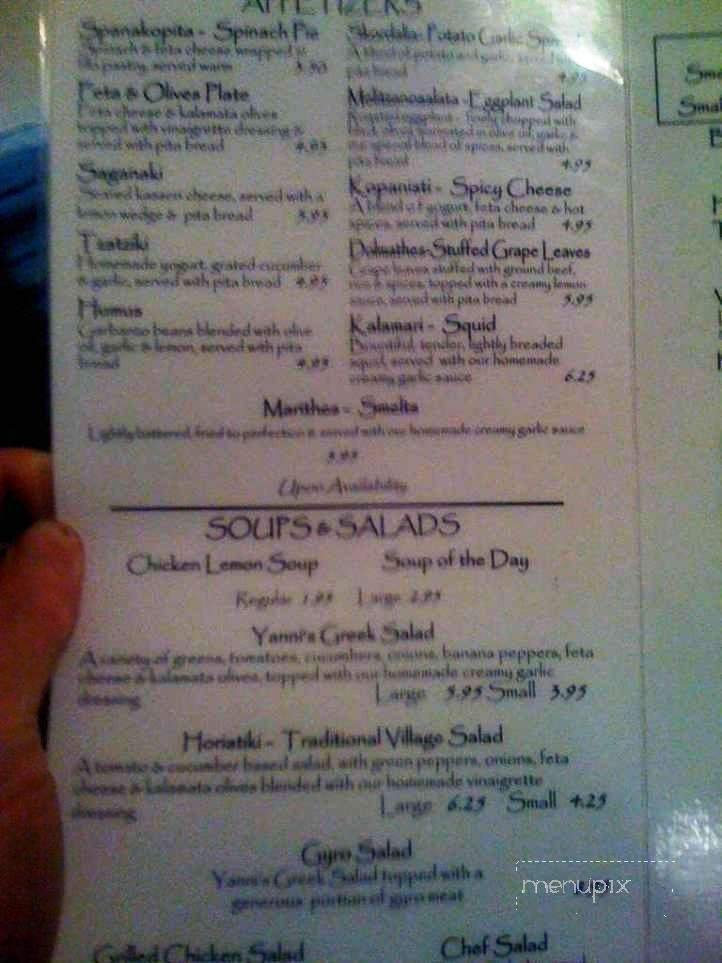 APPETIZERS
Spanakopita - Spinach Pie
Spinach & feta cheese wrapped in
filo pastry, served warm 3.50
Feta & Olives Plate
Feta cheese & kalamata olives
topped with vinaigrette dressing &
served with pita bread 4.95
Saganaki
kasseri cheese, served with a
lemon wedge & pita bread 5.95
Tzatziki
Homemade yogurt, grated cucumber
& garlic, served with pita bread 4.95
Humus
Garbanzo beans blended with olive
oil, garlic & lemon, served with pita
bread 4.95
Skordalia- Potato Garlic
A blend of potato and garlic,
pita bread 4.95
Melitzanosalata - Eggplant Salad
Roasted eggplant - finely chopped with
black olives marinated in olive oil, garlic &
our special blend of spices, served with
pita bread 4.95
Kopanisti - Spicy Cheese
A blend of yogurt, feta cheese & hot
spices, served with pita bread 4.95
Dolmathes-Stuffed Grape Leaves
Grape leaves stuffed with ground beef,
rice & spices, topped with a creamy lemon
sauce, served with pita bread 5.95
Kalamari - Squid
Bountiful, tender, lightly breaded
squid, served with our homemade
creamy garlic sauce 6.25
Marithes - Smelts
Lightly battered, fried to perfection & served with our homemade creamy garlic sauce
5.95
Upon Availability
SOUPS & SALADS
Chicken Lemon Soup Soup of the Day
Regular 1.95 Large 2.95
Yanni's Greek Salad
A variety of greens, tomatoes, cucumbers, onions, banana peppers, feta
cheese & kalamata olives, topped with our homemade creamy garlic
dressing Large 5.95 Small 3.95
Horiatiki - Traditional Village Salad
A tomato & cucumber based salad, with green peppers, onions, feta
cheese & kalamata olives blended with our homemade vinaigrette
dressing Large 6.25 Small 4.25
Gyro Salad
Yanni's Greek Salad topped with a
generous portion of gyro meat
menupix
Grilled Chicken Salad Chef Salad